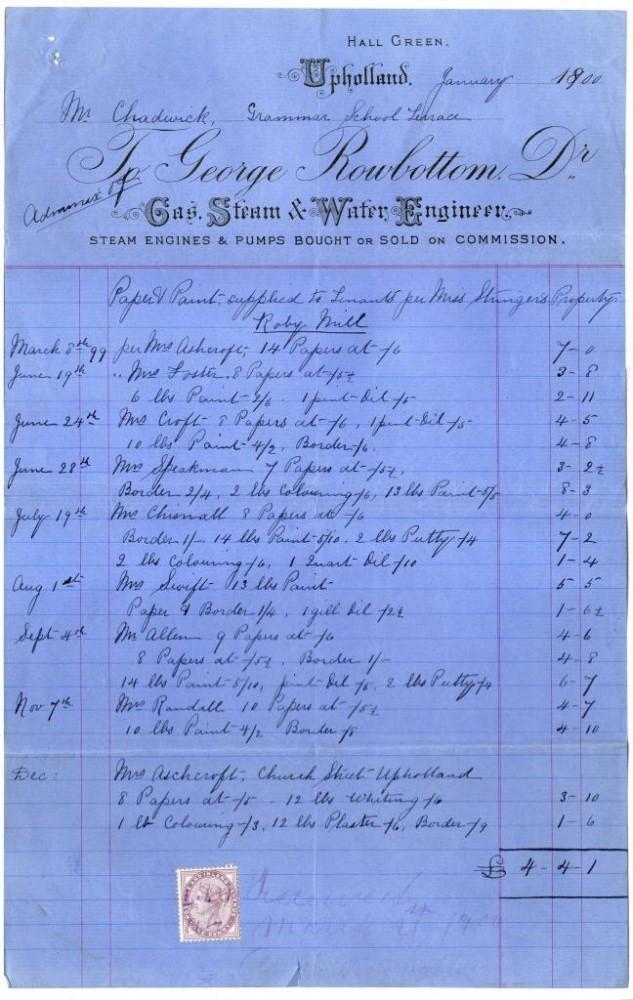 HALL GREEN.
Upholland, January 1900
Mr Chadwick, Grammar School Terrace
To George Rowbottom. Dr
Gas, Steam & Water Engineer.
STEAM ENGINES & PUMPS BOUGHT OR SOLD ON COMMISSION.
Paper & Paint supplied to Tenants per Miss Stringers Property
Roby Mill
March 8th 99 per Mrs Ashcroft, 14 Papers at -/6 7-0
June 19th " Mrs Foster, 8 Papers at -/5½ 3-8
6 lbs Paint 2/6. 1 pint Oil -/5 2-11
June 24th Mrs Croft 8 Papers at -/6, 1 pint Oil -/5 4-5
10 lbs Paint 4/2, Border -/6. 4-8
June 28th Mrs Speakman 7 Papers at -/5½, 3-2½
Border 2/4, 2 lbs Colouring -/6, 13 lbs Paint 5/5 8-3
July 19th Mrs Chisnall 8 Papers at -/6 4-0
Border 1/- 14 lbs Paint 5/10, 2 lbs Putty -/4 7-2
2 lbs Colouring -/6, 1 Quart Oil -/10 1-4
Aug 1st Mrs Swift 13 lbs Paint 5 5
Paper & Border 1/4, 1 gill Oil -/2½ 1-6½
Sept 4th Mr Allen 9 Papers at -/6 4-6
8 Papers at -/5½, Border 1/- 4-8
14 lbs Paint 5/10, pint Oil -/5, 2 lbs Putty -/4 6-7
Nov 7th Mrs Randall 10 Papers at -/5½ 4-7
10 lbs Paint 4/2 Border -/8 4-10
Dec: Mrs Aschcroft, Church Street Upholland
8 Papers at -/5 - 12 lbs Whiting -/6 3-10
1 lb Colouring -/3, 12 lbs Plaster -/6, Border -/9 1-6
£ 4-4-1
Received
March 1900